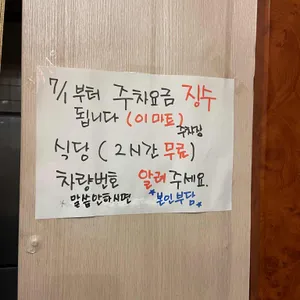 7/1 부터 주차요금 징수
됩니다 (이마트)
주차장
식당 (2시간 무료)
차량번호 알려주세요.
* 말씀안하시면 *본인부담*